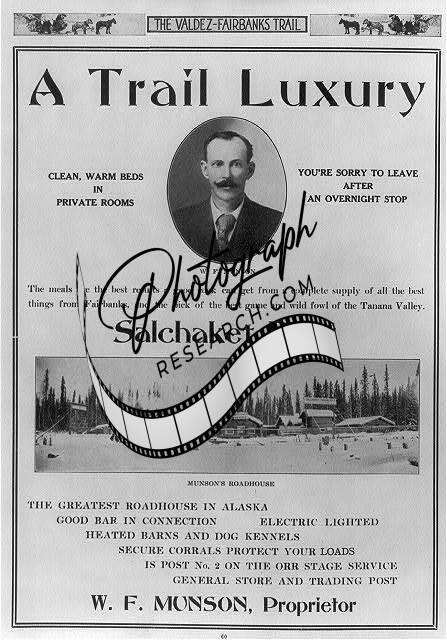 THE VALDEZ-FAIRBANKS TRAIL
A Trail Luxury
CLEAN, WARM BEDS
IN
PRIVATE ROOMS
YOU'RE SORRY TO LEAVE
AFTER
AN OVERNIGHT STOP
W. F.
The meals the best a good can get from a complete supply of all the best
things from Fairbanks, and the pick of the best game and wild fowl of the Tanana Valley.
Photograph
RESEARCH.COM
Salchaket
MUNSON'S ROADHOUSE
THE GREATEST ROADHOUSE IN ALASKA
GOOD BAR IN CONNECTION ELECTRIC LIGHTED
HEATED BARNS AND DOG KENNELS
SECURE CORRALS PROTECT YOUR LOADS
IS POST No. 2 ON THE ORR STAGE SERVICE
GENERAL STORE AND TRADING POST
W. F. MUNSON, Proprietor
60